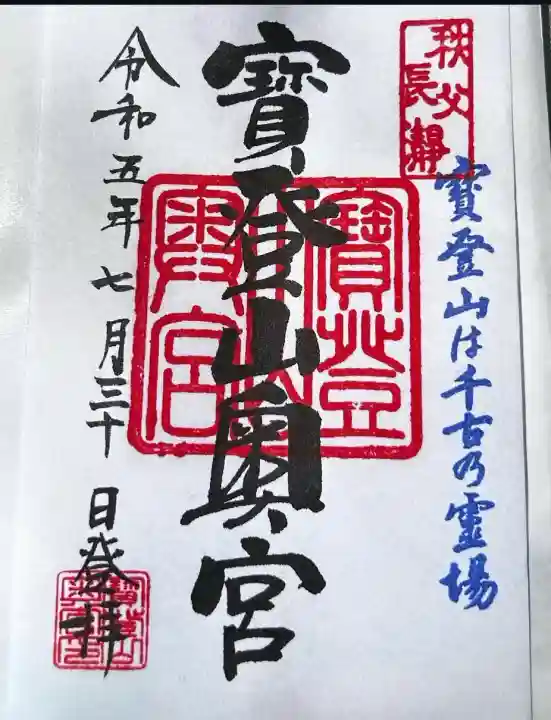 秩父
長瀞
寶登山は千古乃霊場
寶登山奥宮
寶登
山奥宮
令和五年七月三十日登拝